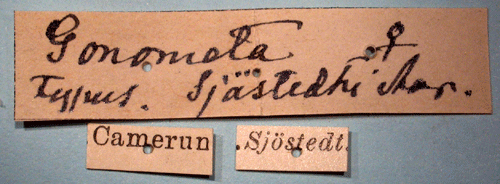 Gonometa ♀
Typus. Sjöstedti Aur.
Camerun
Sjöstedt.